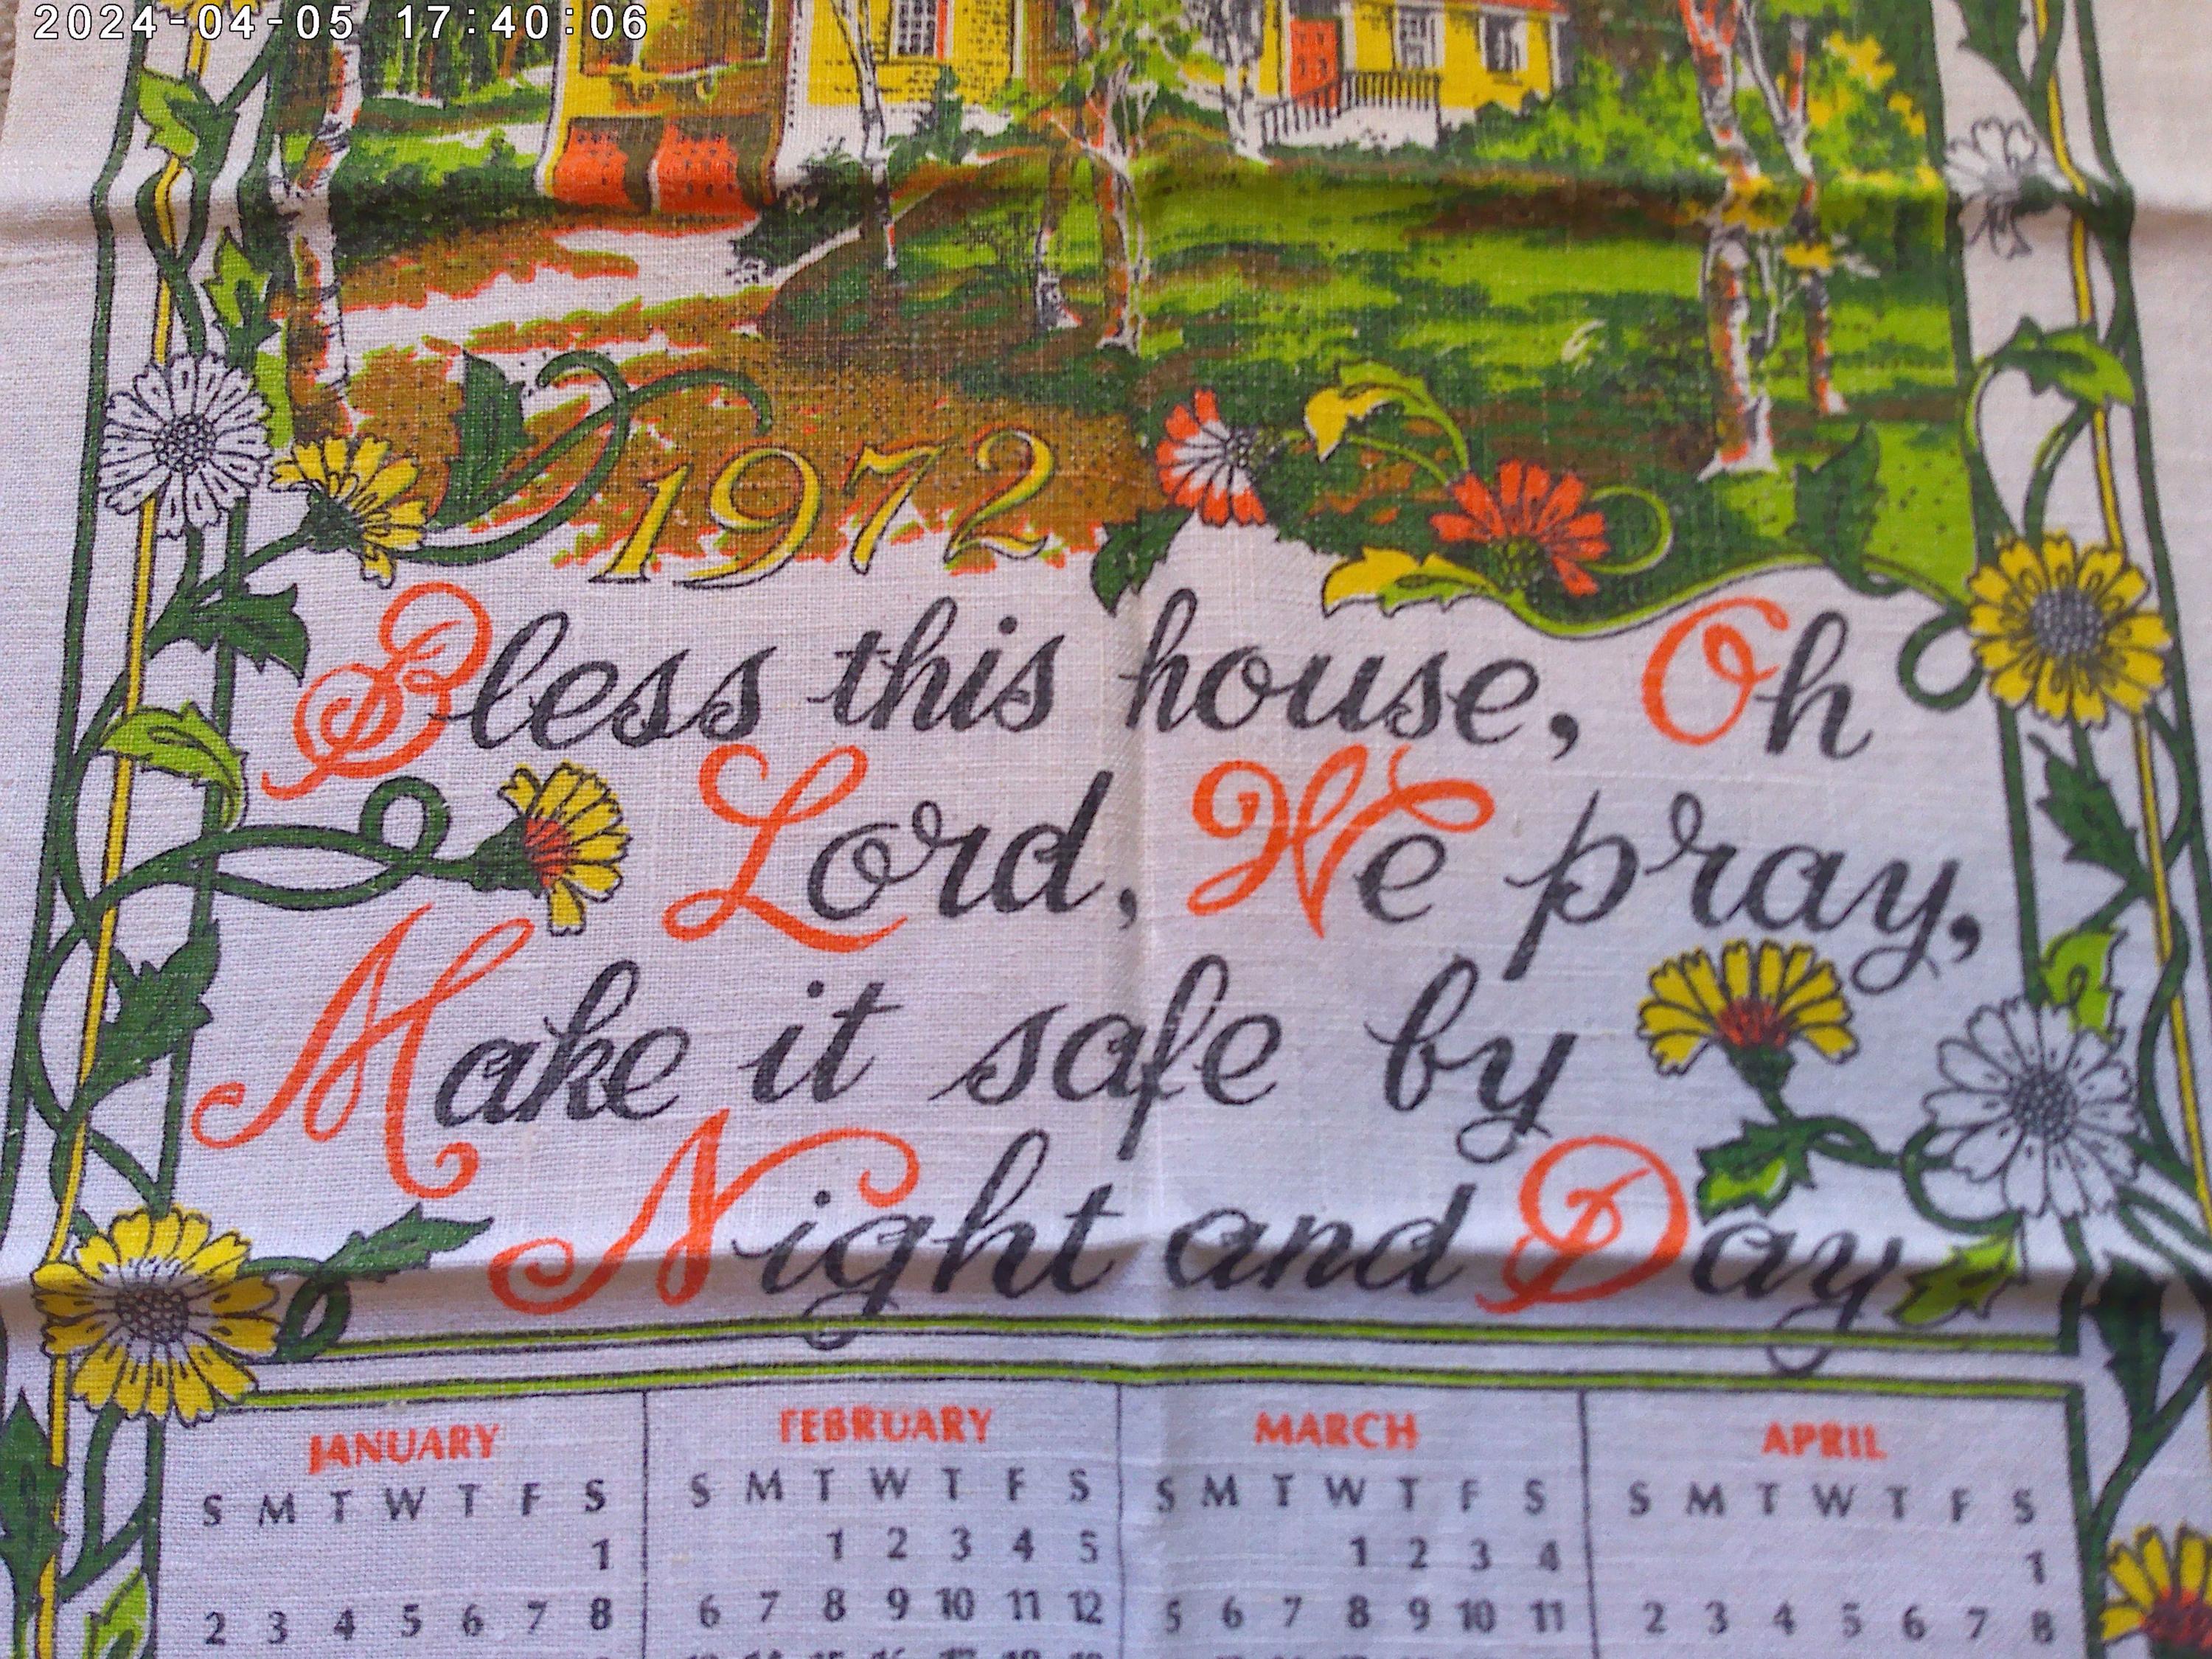 2024-04-05 17:40:06
1972
Bless this house, Oh
Lord, We pray,
Make it safe by
Night and Day
JANUARY FEBRUARY MARCH APRIL
S M T W T F S S M T W T F S S M T W T F S S M T W T F S
1 1 2 3 4 5 1 2 3 4 1
2 3 4 5 6 7 8 6 7 8 9 10 11 12 5 6 7 8 9 10 11 2 3 4 5 6 7 8